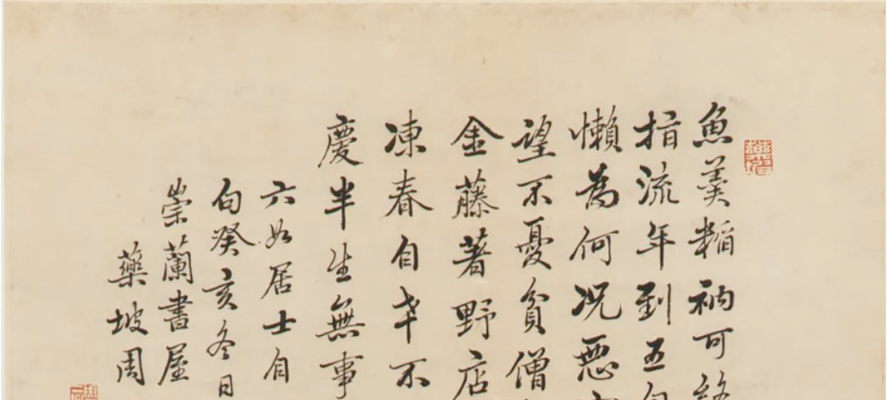 魚羹稻衲可
指流年到五
懶為何況惡
望不憂貧僧
金藤著野店
凍春自幸不
慶半生無事
六如居士自
句癸亥冬日
崇蘭書屋
藥坡周